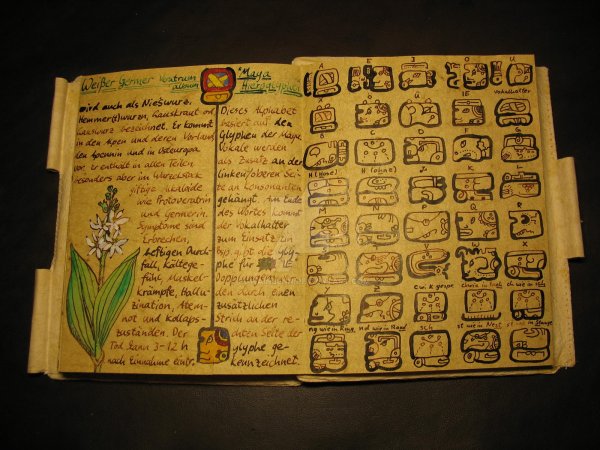 Weißer Germer Veratrum album
wird auch als Nießwurz,
Hemmer(t)wurzn, Lauskraut od
Lauswurz bezeichnet. Er kommt
in den Alpen und deren Vorland,
den Apennin und in Osteuropa
vor. Er enthält in allen Teilen
besonders aber im Wurzelstock
giftige Alkaloide
wie Protoveratrin
und Germerin.
Symptome sind
Erbrechen,
heftigen Durch-
fall, Kältege-
fühl, Muskel-
krämpfe, Hallu-
zination, Atem-
not und Kollaps-
zuständen. Der
Tod kann 3-12 h
nach Einnahme eintr.
*Maya
Hieroglyphen
Dieses Alphabet
basiert auf den
Glyphen der Maya.
Vokale werden
als Zusatz an der
linken/oberen Sei-
te an Konsonanten
gehängt. Am Ende
des Wortes kommt
der Vokalhalter
zum Einsatz. Zin
bsp. gibt die Gly-
phe für
Dopplungen wer-
den durch einen
zusätzlichen
Strich an der re-
chten Seite der
Glyphe ge-
kennzeichnet.
A E I O U
Vokalhalter
Ä Ö Ü IE
B C D F G
H (Hose) H (ohne) J K L
M N O Q R
S T U V W X
Y Z C w. K gespr. ch wie in ich ch wie in Holz
ng wie in Ring Nd wie in Rand Sch st wie in Nest st wie in Stange